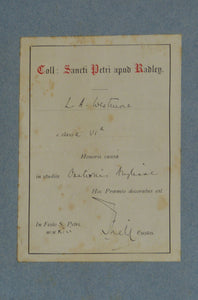 Coll: Sancti Petri apud Radley.
L. A.
classe VIª
Honoris causa
in studiis Orationis Anglicae
Hoc Praemio decoratus est
In Festo S. Petri,
Custos